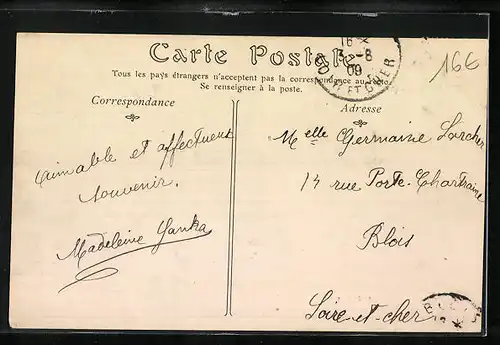 Carte Postale
16
3-8
09
ET CHER
16€
Tous les pays étrangers n'acceptent pas la correspondance au
Se renseigner à la poste.
Correspondance
Adresse
aimable et affectueux
souvenir.
Madeleine
Melle Germaine
14 rue Porte-Chartraine
Blois
Loire-et-cher